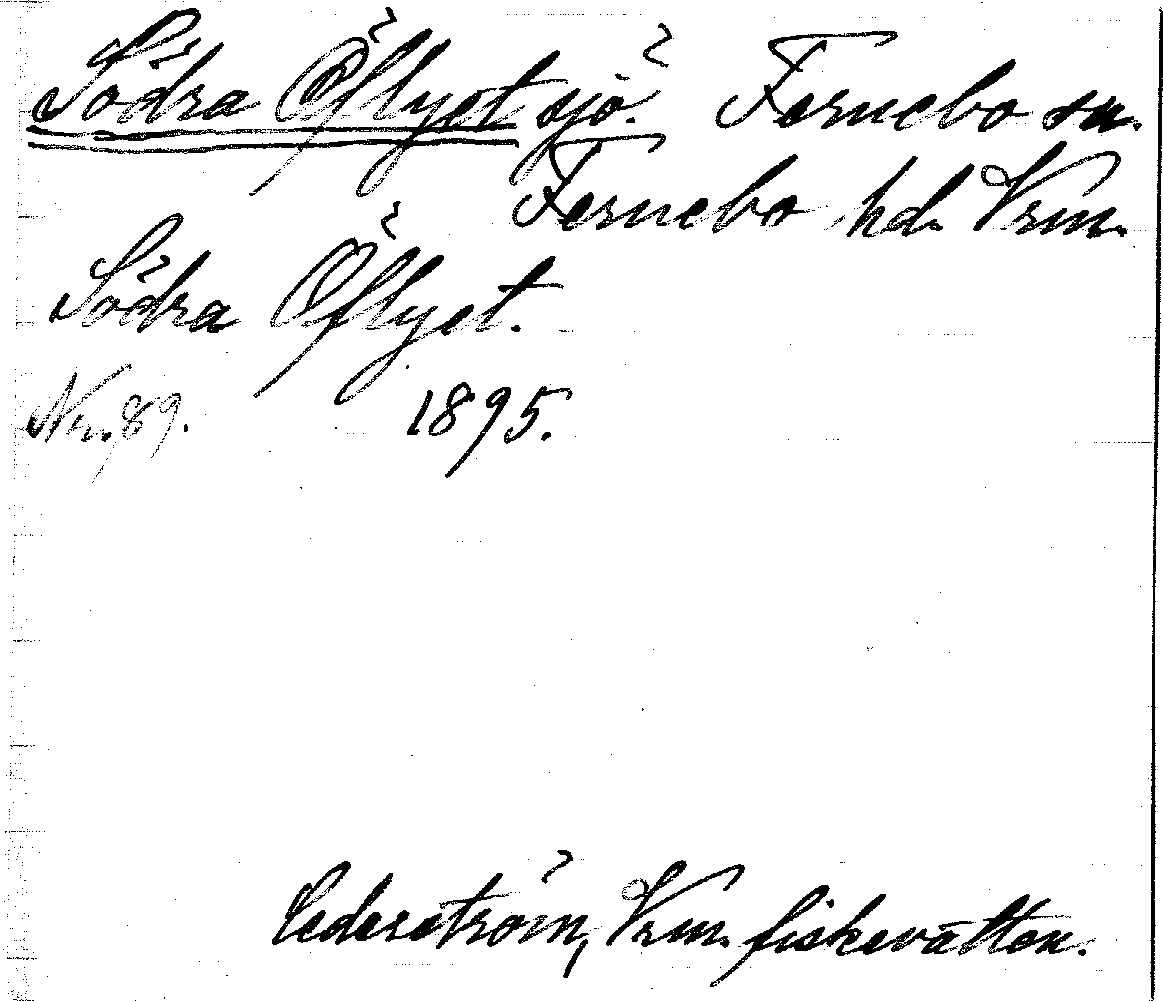 Södra Öflyet sjö. Fernebo sn.
Fernebo hd. Vrm.
Södra Öflyet.
Nr. 89. 1895.
Cederström, Vrm. fiskevatten.